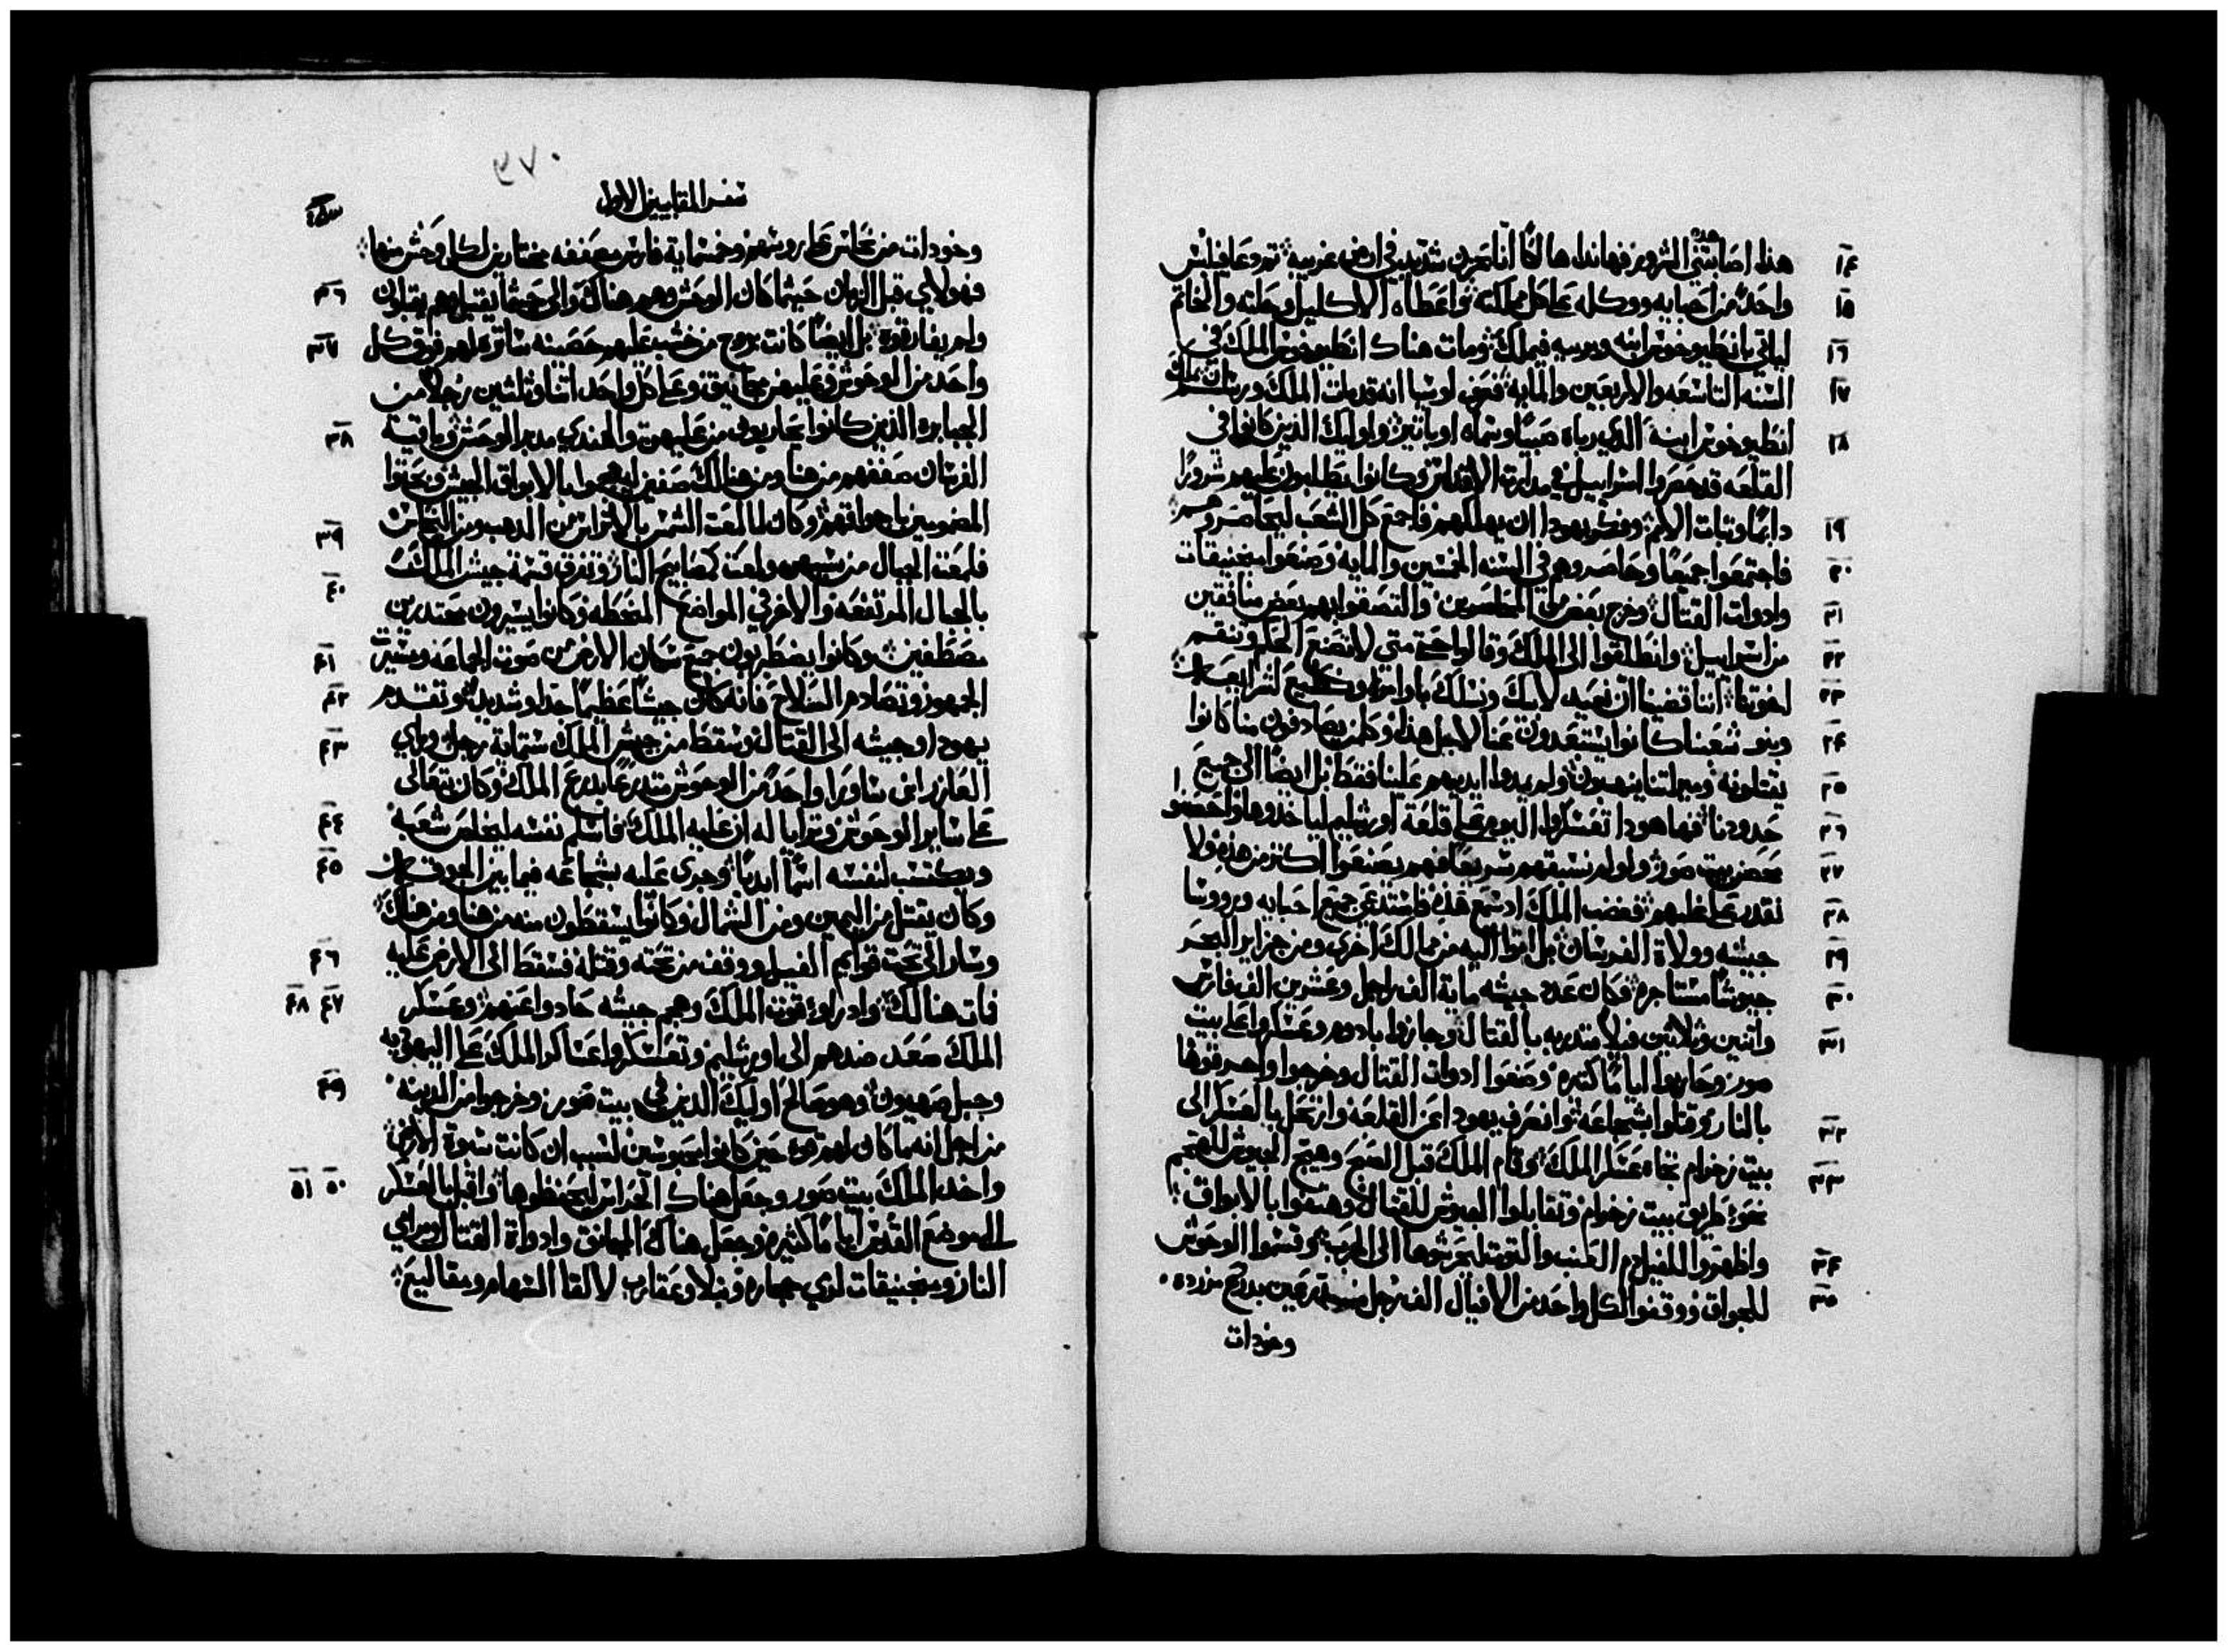 هذا اصابتني هذه الشرور فهانذا هالكًا انا بحزن شديد في ارض غريبه ثم دعا فيلبس
١٤
واحدًا من احبابه ووكله على كل مملكته واعطاه الاكليل وحلته والخاتم
١٥
لياتي بانطيوخوس ابنه ويربيه فيملك ومات هناك انطيوخوس الملك في
١٦
السنه التاسعه والاربعين والمايه فعرف لوسيا انه قد مات الملك ورتب ان يملك
١٧
انطيوخوس ابنه الذي رباه صبيًا وسماه اوباتير واوليك الذين كانوا في
١٨
القلعه قد حصروا اسراييل في مدارة الاقداس وكانوا يطلبون عليهم شرورًا
دايمًا وثبات الامم وفكر يهودا ان يهلكهم فاجمع كل الشعب ليحاصروهم
١٩
فاجتمعوا جميعًا وحاصروهم في السنه الخمسين والمايه وصنعوا منجنيقات
٢٠
وادوات القتال وخرج بعض من المحاصرين والتصقوا بهم بعض منافقين
٢١
من اسراييل وانطلقوا الى الملك وقالوا حتى متى لا تصنع الحكم وتنقم
٢٢
اخوتنا اننا قضينا ان نعبد لابيك ونسلك باوامره ونطيع لشرايعه
٢٣
وبنو شعبنا كانوا يستبعدون عنا لاجل هذا وكلمن يصادفون منا كانوا
٢٤
يقتلونه وميراثنا ينهبون ولم يمدوا ايديهم علينا فقط بل ايضًا الى جميع
٢٥
حدودنا فها هوذا تعسكروا اليوم على قلعة اورشليم لياخذوها وحصنوا
٢٦
محصن بيت صور ولو لم تسبقهم سريعًا فهم يصنعوا اكثر من هذه ولا
٢٧
تقدر على غلبهم فغضب الملك اذ سمع هذه فاستدعى جميع احبابه وروسا
٢٨
جيشه وولاة الفرسان بل اتوا اليه من ممالك اخرى ومن جزاير البحر
٢٩
جيوشًا مستاجره فكان عدد جيشه ماية الف راجل وعشرين الف فارس
٣٠
واثنين وثلاثين فيلًا متدربه بالقتال وجازوا بادوم وعسكروا على بيت
٣١
صور وحاربوا ايامًا كثيره وصنعوا ادوات القتال وخرجوا واحرقوها
بالنار وقاتلوا بشجاعه وانصرف يهودا عن القلعه وارتحل بالعسكر الى
٣٢
بيت زخرام تجاه عسكر الملك وقام الملك قبل الصبح وهيج الجيوش للهجم
٣٣
نحو طريق بيت زخرام وتقابلوا الجيوش للقتال وهتفوا بالابواق
واظهروا للفيل دم العنب والتوت ليحرشوها الى الحرب وقسموا الوحوش
٣٤
للجواق ووقفوا لكل واحد من الافيال الف رجل متدرعين بدروع مزرده
٣٥
وخودات
سفر المقابيين الاول
وخودات من نحاس على روسهم وخمسماية فارس مصففه مختارين لكل وحش منها
فهولاي قبل الزمان حيثما كان الوحش وهم هناك والى حيثما يقبل هم يقبلون
٣٦
ولم يفارقوه بل ايضًا كانت بروج من خشب عليهم حصينه ساتره لهم فوق كل
٣٧
واحد من الوحوش وعليهن مجانيق وعلى كل واحد اثنا وثلثين رجلًا من
الجبابره الذين كانوا يحاربون من عليهن والهندي مدبر الوحش وباقية
٣٨
الفرسان صففهم من هنا ومن هنالك صفين ليهيجوا بالابواق الجيش ويحثوا
المضمومين باجواقهم وكان لما لمعت الشمس بالاتراس من الذهب ومن النحاس
٣٩
فلمعت الجبال من شبههن ولمعت كمصابيح النار وتفرق قسمة جيش الملك
بالجبال المرتفعه والاخر في المواضع المنحطه وكانوا يسيرون محتدرين
٤٠
مصطفين وكانوا يضطربون جميع سكان الارض من صوت الجماعه وسيرت
٤١
الجمهور وتصادم السلاح فانه كان جيشًا عظيمًا جدًا وشديدًا وتقدم
٤٢
يهودا وجيشه الى القتال وسقط من جيش الملك ستماية رجل وراي
٤٣
العازر ابن ساورا واحدًا من الوحوش متدرعًا بدرع الملك وكان يتعالى
على ساير الوحوش وترايا له ان عليه الملك فاسلم نفسه ليخلص شعبه
٤٤
ويكتسب لنفسه اسمًا ابديًا وجرى عليه بشجاعه فيما بين الجوقه
٤٥
وكان يقتل من اليمين ومن الشمال وكانوا يسقطون منه من هنا ومن هناك
وسار الى تحت قوايم الفيل ووقف من تحته وقتله فسقط الى الارض عليه
٤٦
فمات هنالك واذ راوا قوة الملك وهجم جيشه حادوا عنهم وعسكر
٤٧ ٤٨
الملك صعد ضدهم الى اورشليم وتعسكروا عساكر الملك على اليهوديه
وجبل صهيون وهو صالح اوليك الذين في بيت صور وخرجوا من المدينه
٤٩
من اجل انه ما كان لهم قوة حين كانوا محبوسين لسبب ان كانت سبوة الارض
واخذ الملك بيت صور وجعل هناك الحراس ليحفظوها واقبل بالعسكر
٥٠ ٥١
الى موضع القدس ايامًا كثيره وجعل هناك المجانق وادواة القتال ومرامي
النار ومنجنيقات لرمي حجاره ونبلًا وعقارب لالقا السهام ومقاليع